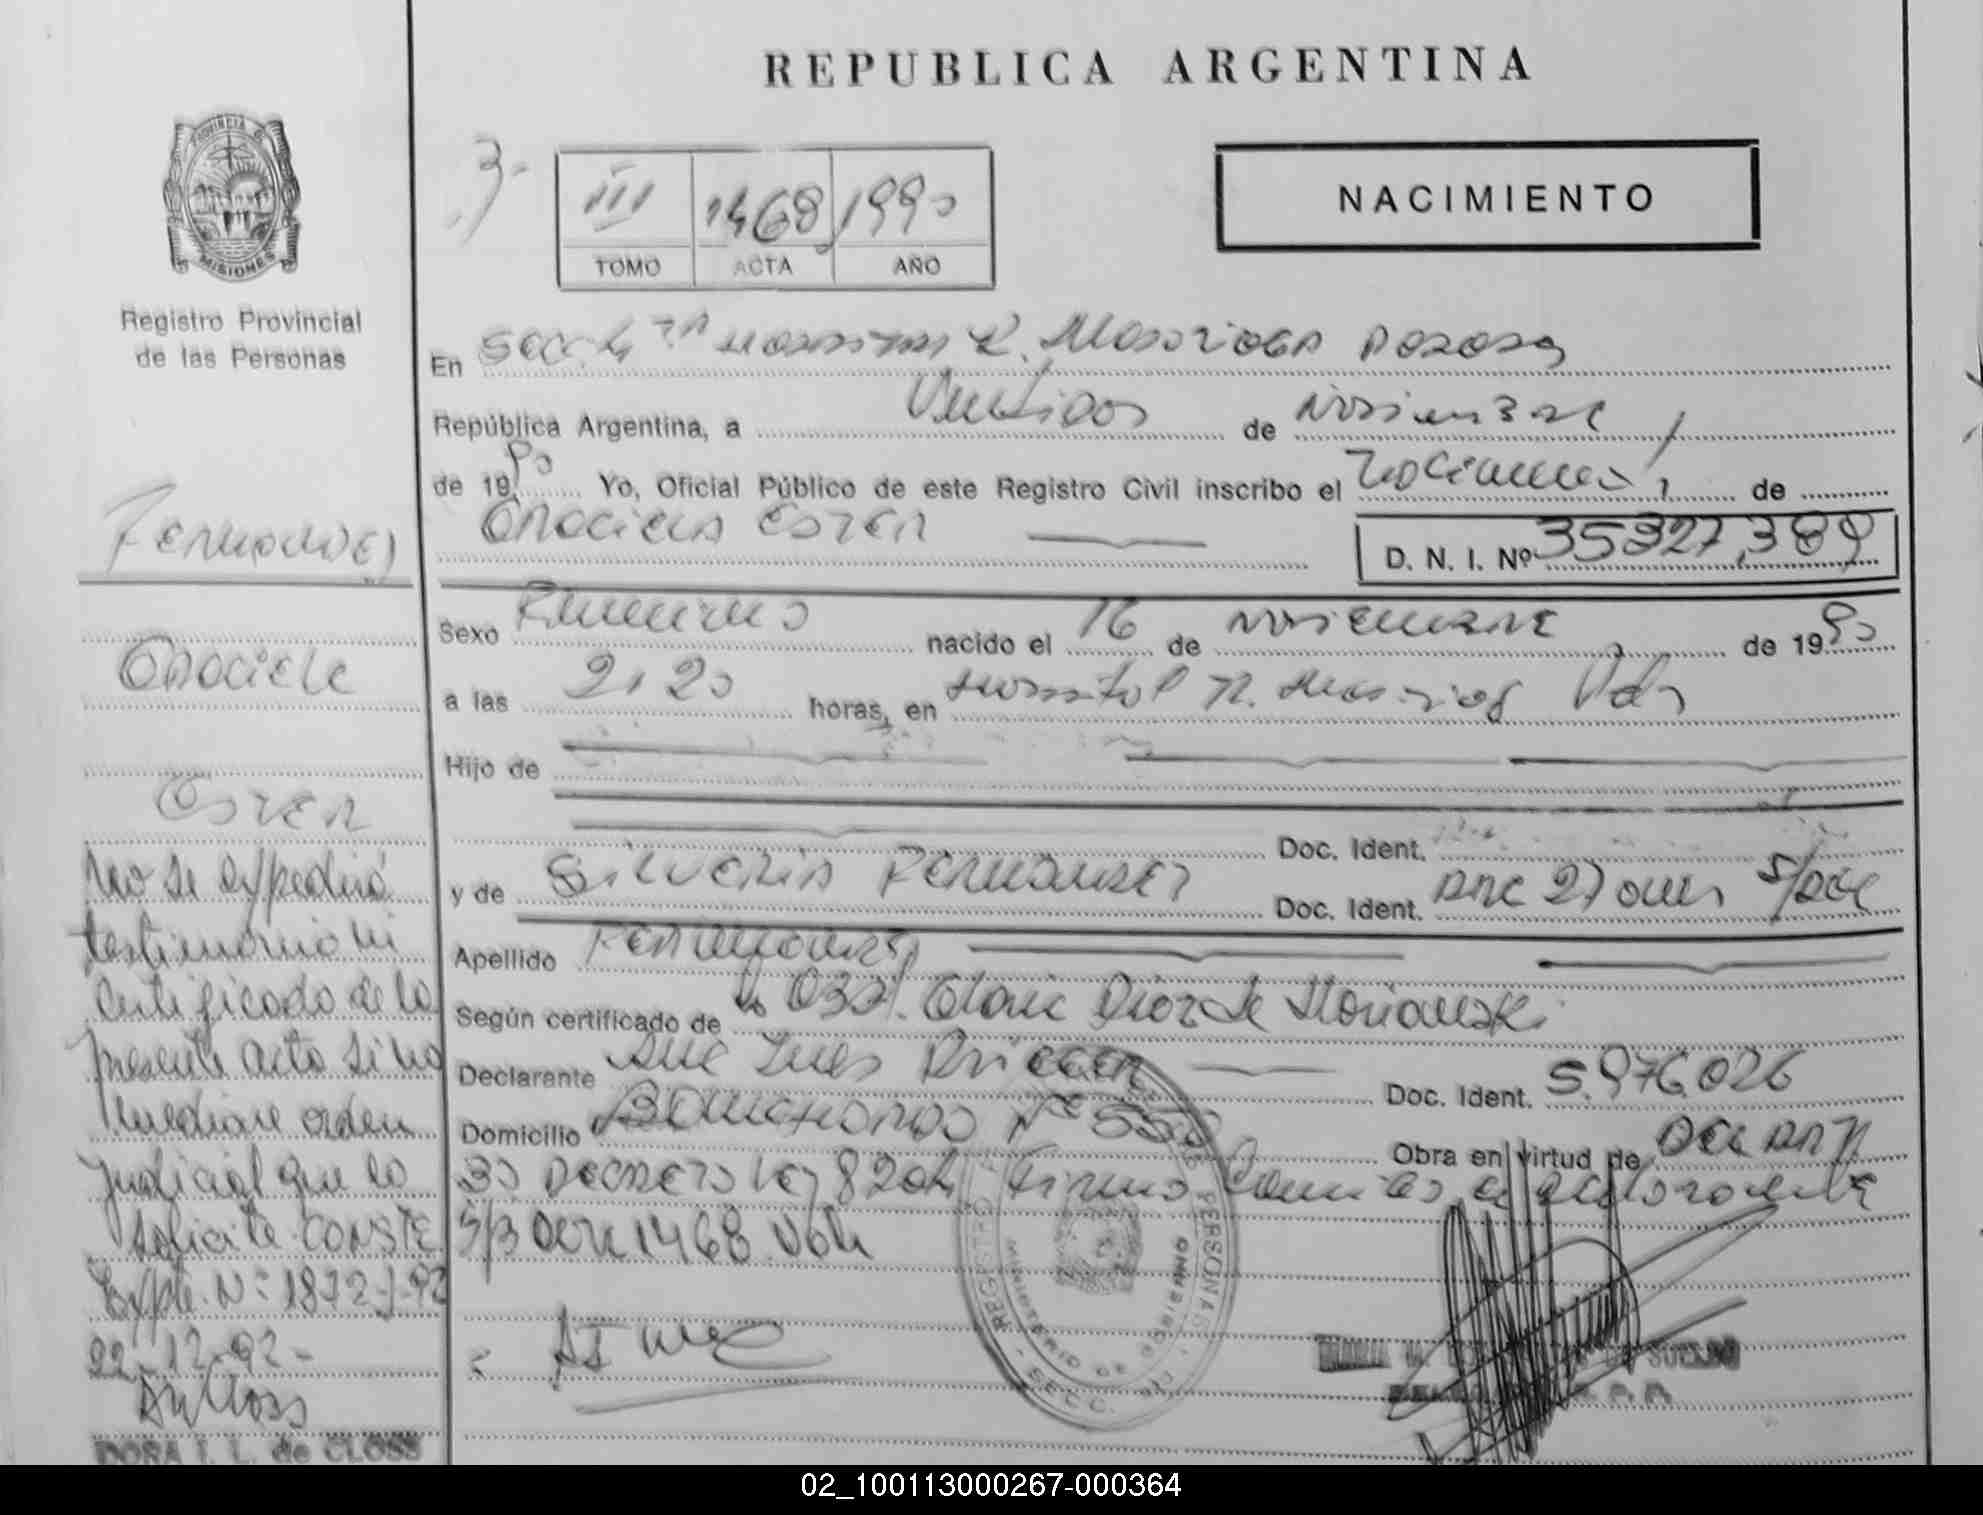 REPUBLICA ARGENTINA
PROVINCIA D
MISIONES
Registro Provincial
de las Personas
3-
III 1468 1990
TOMO ACTA AÑO
NACIMIENTO
En Secc 4 Posadas
República Argentina, a Veintidos de Noviembre
de 1990 Yo, Oficial Público de este Registro Civil inscribo el nacimiento de
Graciela Ester
D. N. I. Nº 35327,389
Fernandez
Graciela
Ester
Sexo Femenino nacido el 16 de noviembre de 1990
a las 21 20 horas, en Hospital R. Madariaga Pdas
Hijo de
Doc. Ident.
y de Silveria Fernandez Doc. Ident. 27 años S/Doc
Apellido Fernandez
Según certificado de la Obst. Diaz de
Declarante Ines Doc. Ident. 5.976.026
Domicilio Nº 550 Obra en virtud de Del Art
30 Decreto Ley 8204 Firma
S/B 1468 Vale
No se expedirá
testimonio ni
Certificado de la
presente acta si no
mediare orden
judicial que lo
solicite. CONSTE
Expte. Nº 1872-J-92
22-12-92-
DORA I. L. de CLOSS
REGISTRO PERSONAS
SECC.
MINISTERIO DE GOBIERNO
02_100113000267-000364